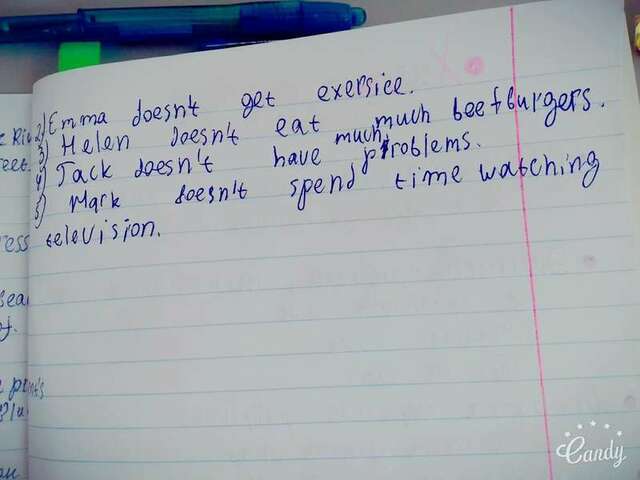 2) Emma doesn't get exersice.
3) Helen doesn't eat much beefburgers.
4) Jack doesn't have much problems.
5) Mark doesn't spend time watching
television.
eet.
ress
sea
of.
Candy